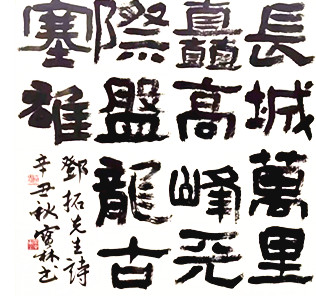 長城萬里
矗高峰天
際盤龍古
塞雄
鄧拓先生詩
辛丑秋寶林书